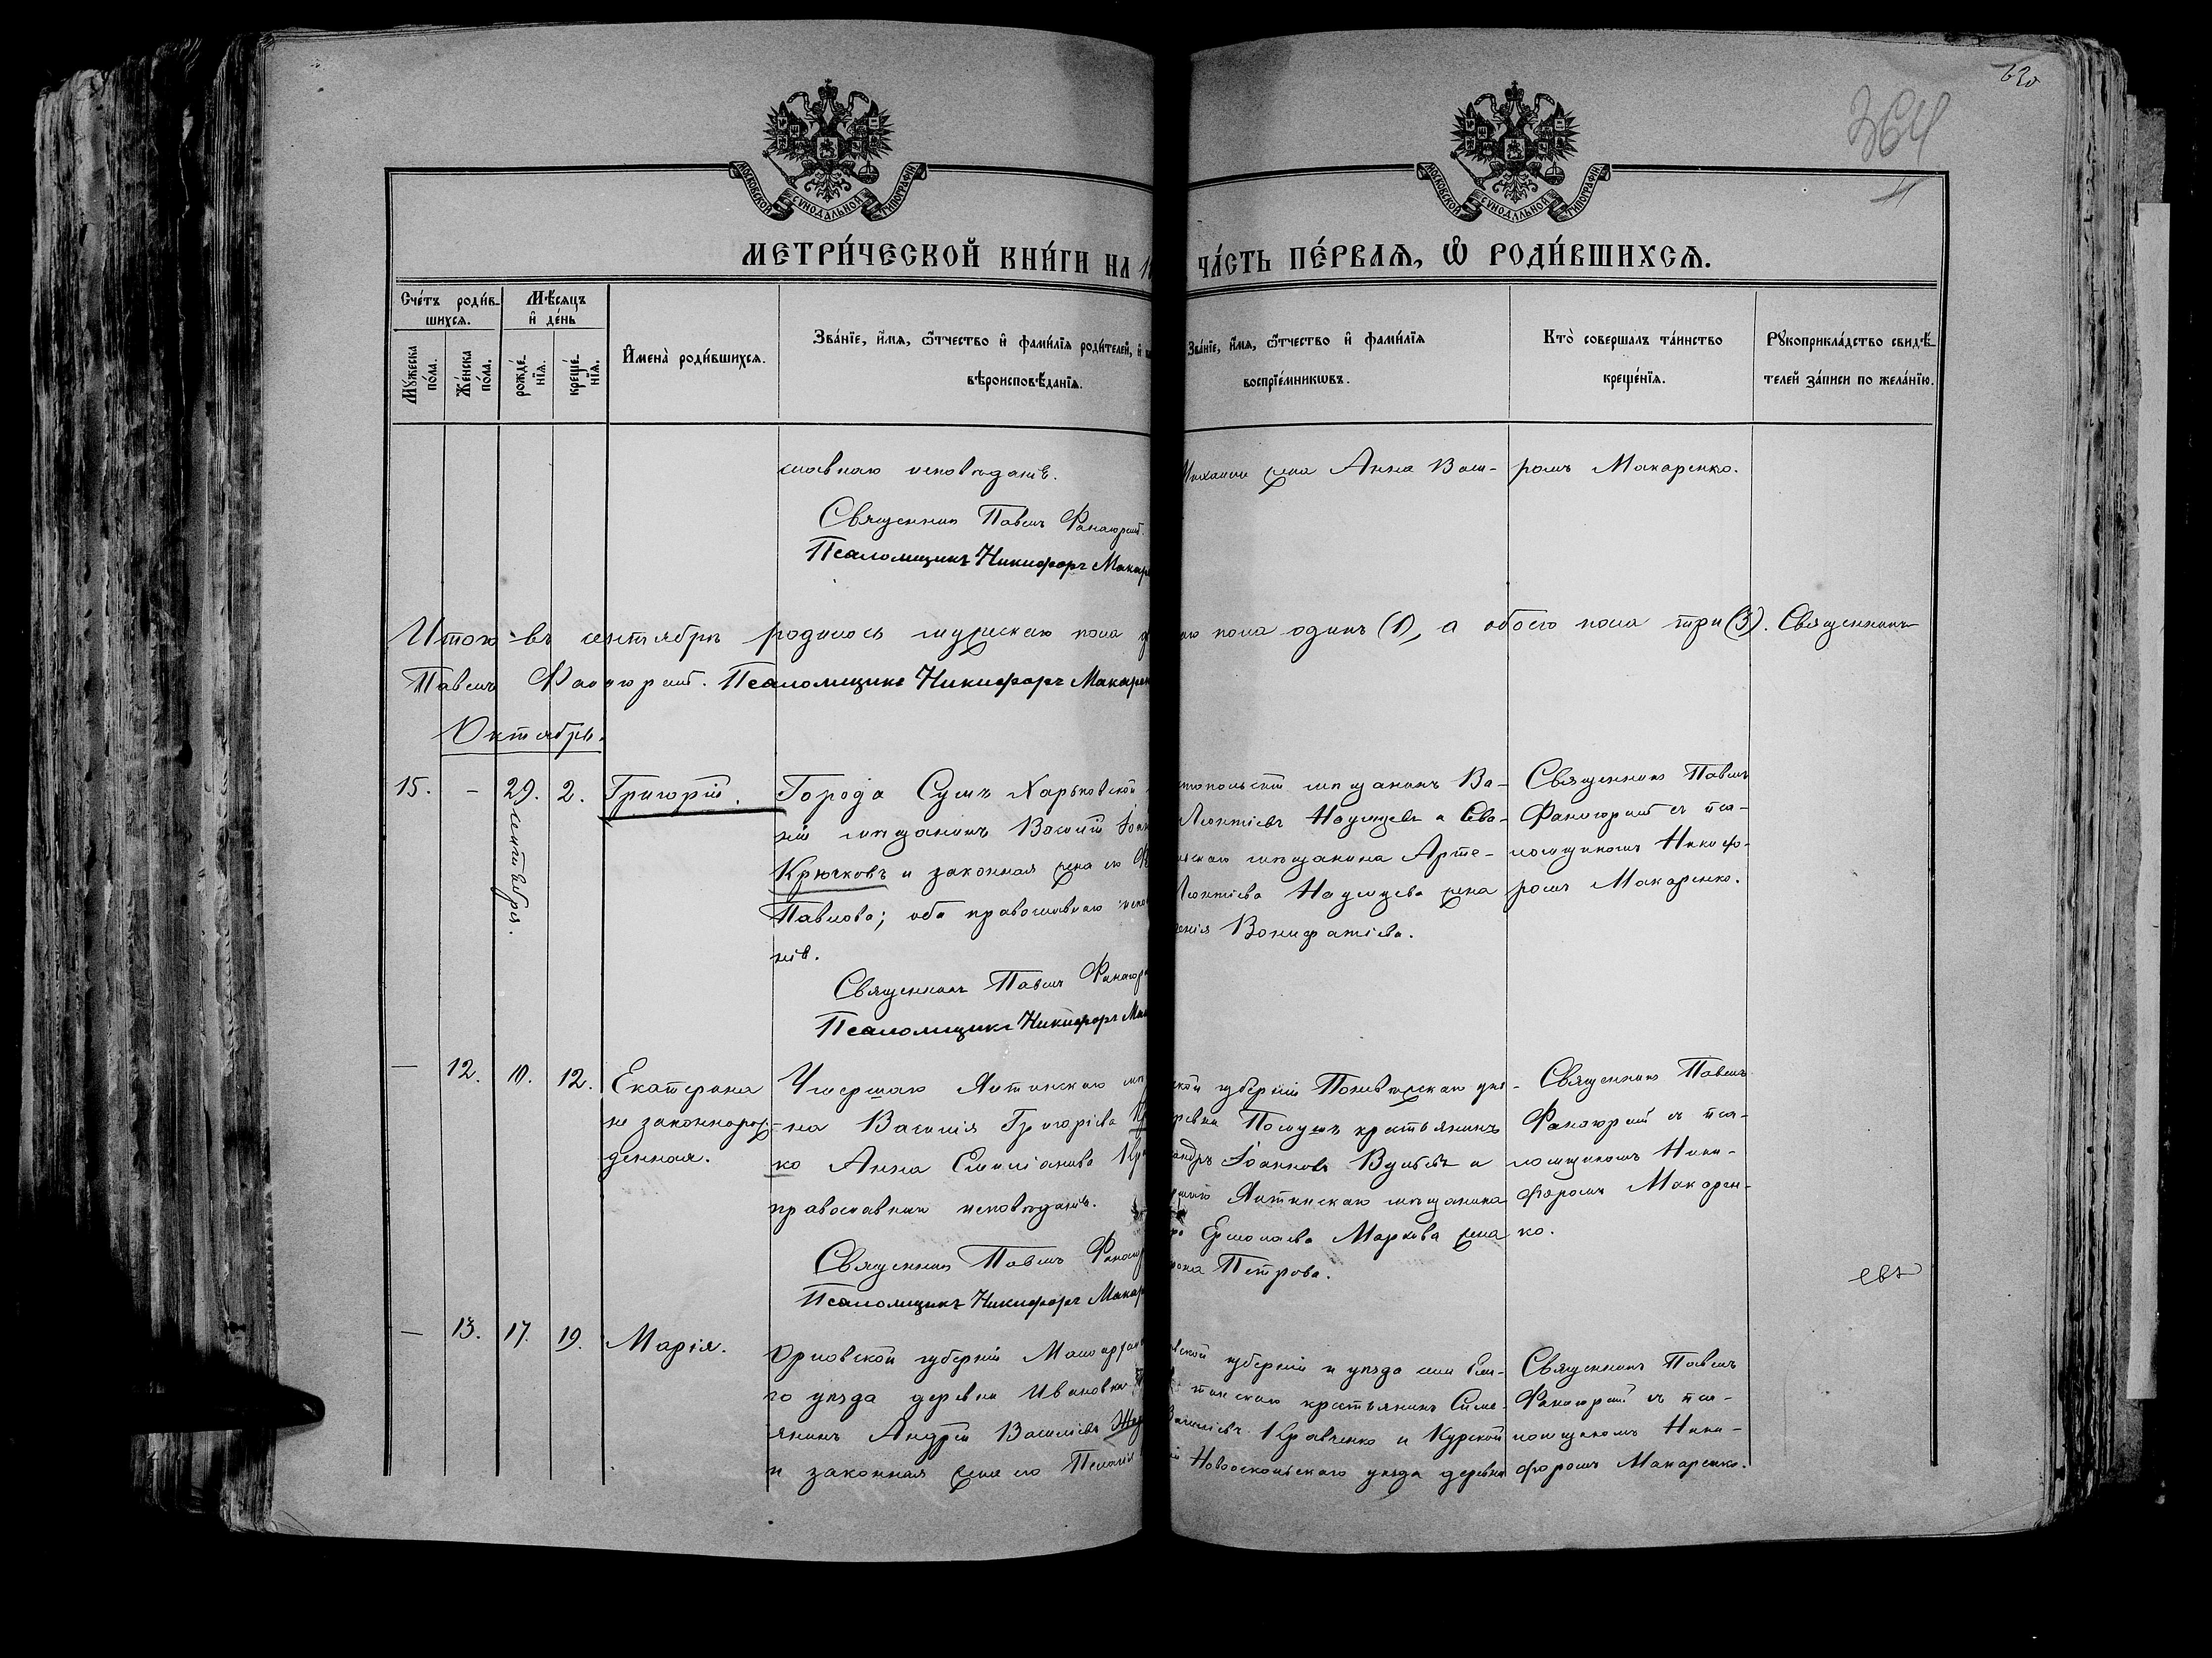 630
364
МОСКОВСКОЙ СУНОДАЛЬНОЙ ТИПОГРАФІИ
МОСКОВСКОЙ СУНОДАЛЬНОЙ ТИПОГРАФІИ
МЕТРИ́ЧЕСКОЙ КНИ́ГИ НА 1
ЧА́СТЬ ПЕ́РВАѦ, Ѡ҆ РОДИ́ВШИХСѦ.
Сче́тъ роди́в-
шихсѧ.
Мѣ́сѧцъ
и҆ де́нь
Мꙋ́жеска
по́ла.
Же́нска
по́ла.
рожде́-
нїѧ.
креще́-
нїѧ.
И҆мена̀ роди́вшихсѧ.
Зва́нїе, и҆́мѧ, ѻ҆́тчество и҆ фами́лїѧ роди́телей, и҆
вѣроисповѣ́данїѧ.
Зва́нїе, и҆́мѧ, ѻ҆́тчество и҆ фами́лїѧ
воспрїе́мникѡвъ.
Кто̀ соверша́лъ та́инство
креще́нїѧ.
Рꙋкоприкла́дство свидѣ́-
телей за́писи по жела́нїю.
славнаго исповѣданія.
Священникъ Павелъ Фанагорій
Псаломщикъ Никифоръ Макар
жена Анна Васи-
ромъ Макаренко.
Итого въ сентябрѣ родилось мужскаго пола
пола одинъ (1), а обоего пола три (3). Священникъ
Павелъ Фанагорій. Псаломщикъ Никифоръ Макарен
Октябрь.
15. - 29. 2. Григорій.
сентября.
Города Сумъ Харьковской
ніи мѣщанинъ Василій Іоан
Крючковъ и законная жена его
Павлова; оба православнаго испо
нія.
Священникъ Павелъ Фанагор
Псаломщикъ Никифоръ Мак
топольскій мѣщанинъ Ва-
Леонтіевъ и Сева-
скаго мѣщанина Арте-
Леонтіева жена
енія Вонифатіева.
Священникъ Павелъ
Фанагорій съ пса-
ломщикомъ Никифо-
ромъ Макаренко.
— 12. 10. 12. Екатерина
не законнорож-
денная.
Умершаго Ялтинскаго мѣ
на Василія Григорьева
ко Анна Емиліанова
православнаго исповѣданія.
Священникъ Павелъ Фанагор
Псаломщикъ Никифоръ Макар
ской губерніи уѣз-
крестьянинъ
андръ Іоанновъ и
Ялтинскаго мѣщанина
Ермолаева Маркова жена
Петрова.
Священникъ Павелъ
Фанагорій съ пса-
ломщикомъ Ники-
форомъ Макарен-
ко.
— 13. 17. 19. Марія.
Орловской губерніи Малоархан
го уѣзда деревни Ивановки
янинъ Андрей Василіевъ
и законная жена его Пелагія
ской губерніи и уѣзда
крестьянинъ Симе-
Василіевъ Кравченко и Курской
Новооскольскаго уѣзда деревни
Священникъ Павелъ
Фанагорій съ пса-
ломщикомъ Ники-
форомъ Макаренко.